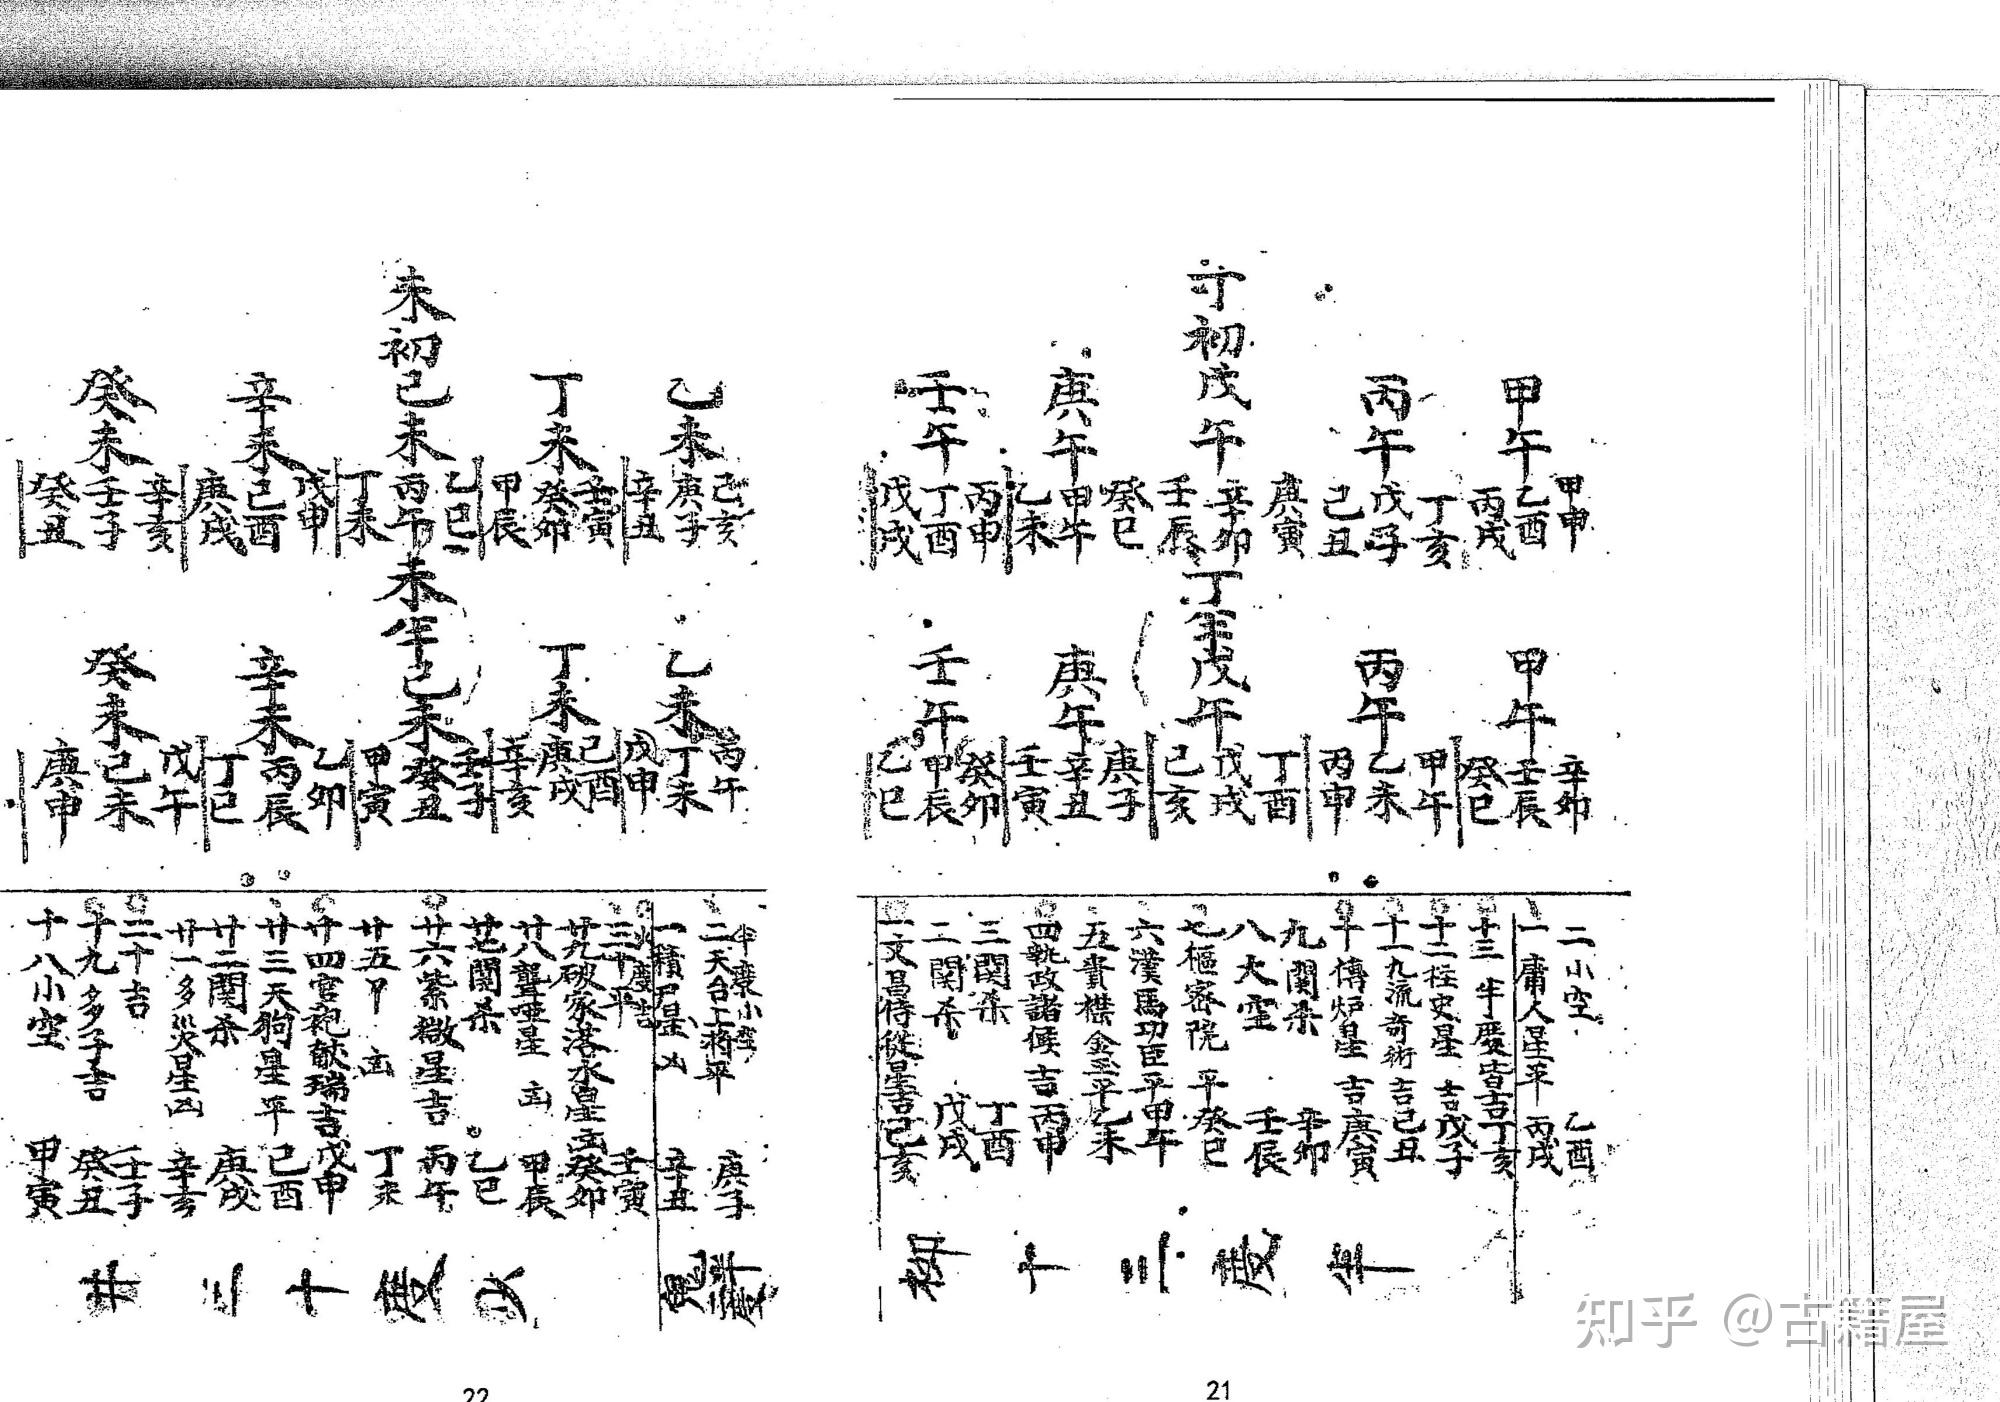 甲午
甲申
乙酉
丙戌
丙午
丁亥
戊子
己丑
初戊午
庚寅
辛卯
壬辰
庚午
癸巳
甲午
乙未
壬午
丙申
丁酉
戊戌
甲午
辛卯
壬辰
癸巳
丙午
甲午
乙未
丙申
戊午
丁酉
戊戌
己亥
庚午
庚子
辛丑
壬寅
壬午
癸卯
甲辰
乙巳
二小空 乙酉
一庸人星平 丙戌
十三 半慶皆吉 丁亥
十二柱史星 吉 戊子
十一九流奇術 吉 己丑
十傳炉星 吉 庚寅
九関杀 辛卯
八大空 壬辰
七樞密院 平 癸巳
六漢馬功臣 平 甲午
五書櫟金玉平 乙未
四執政諸候 吉 丙申
三関杀 丁酉
二関杀 戊戌
一文昌侍從星吉 己亥
21
乙未
己亥
庚子
辛丑
丁未
壬寅
癸卯
甲辰
未初己未
乙巳
丙午
丁未
辛未
戊申
己酉
庚戌
癸未
辛亥
壬子
癸丑
乙未
丙午
丁未
戊申
丁未
己酉
庚戌
辛亥
未半己未
壬子
癸丑
甲寅
辛未
乙卯
丙辰
丁巳
癸未
戊午
己未
庚申
二天台工蒋平 庚子
一積尸星 凶 辛丑
三十平 壬寅
廿九破家落水星凶 癸卯
廿八聾啞星 凶 甲辰
廿七関杀 乙巳
廿六紫微星吉 丙午
廿五 凶 丁未
廿四宮袍献瑞吉 戊申
廿三天狗星平 己酉
廿二関杀 庚戌
廿一多災星凶 辛亥
二十吉 壬子
十九多子吉 癸丑
十八小空 甲寅
22
知乎 @古籍屋